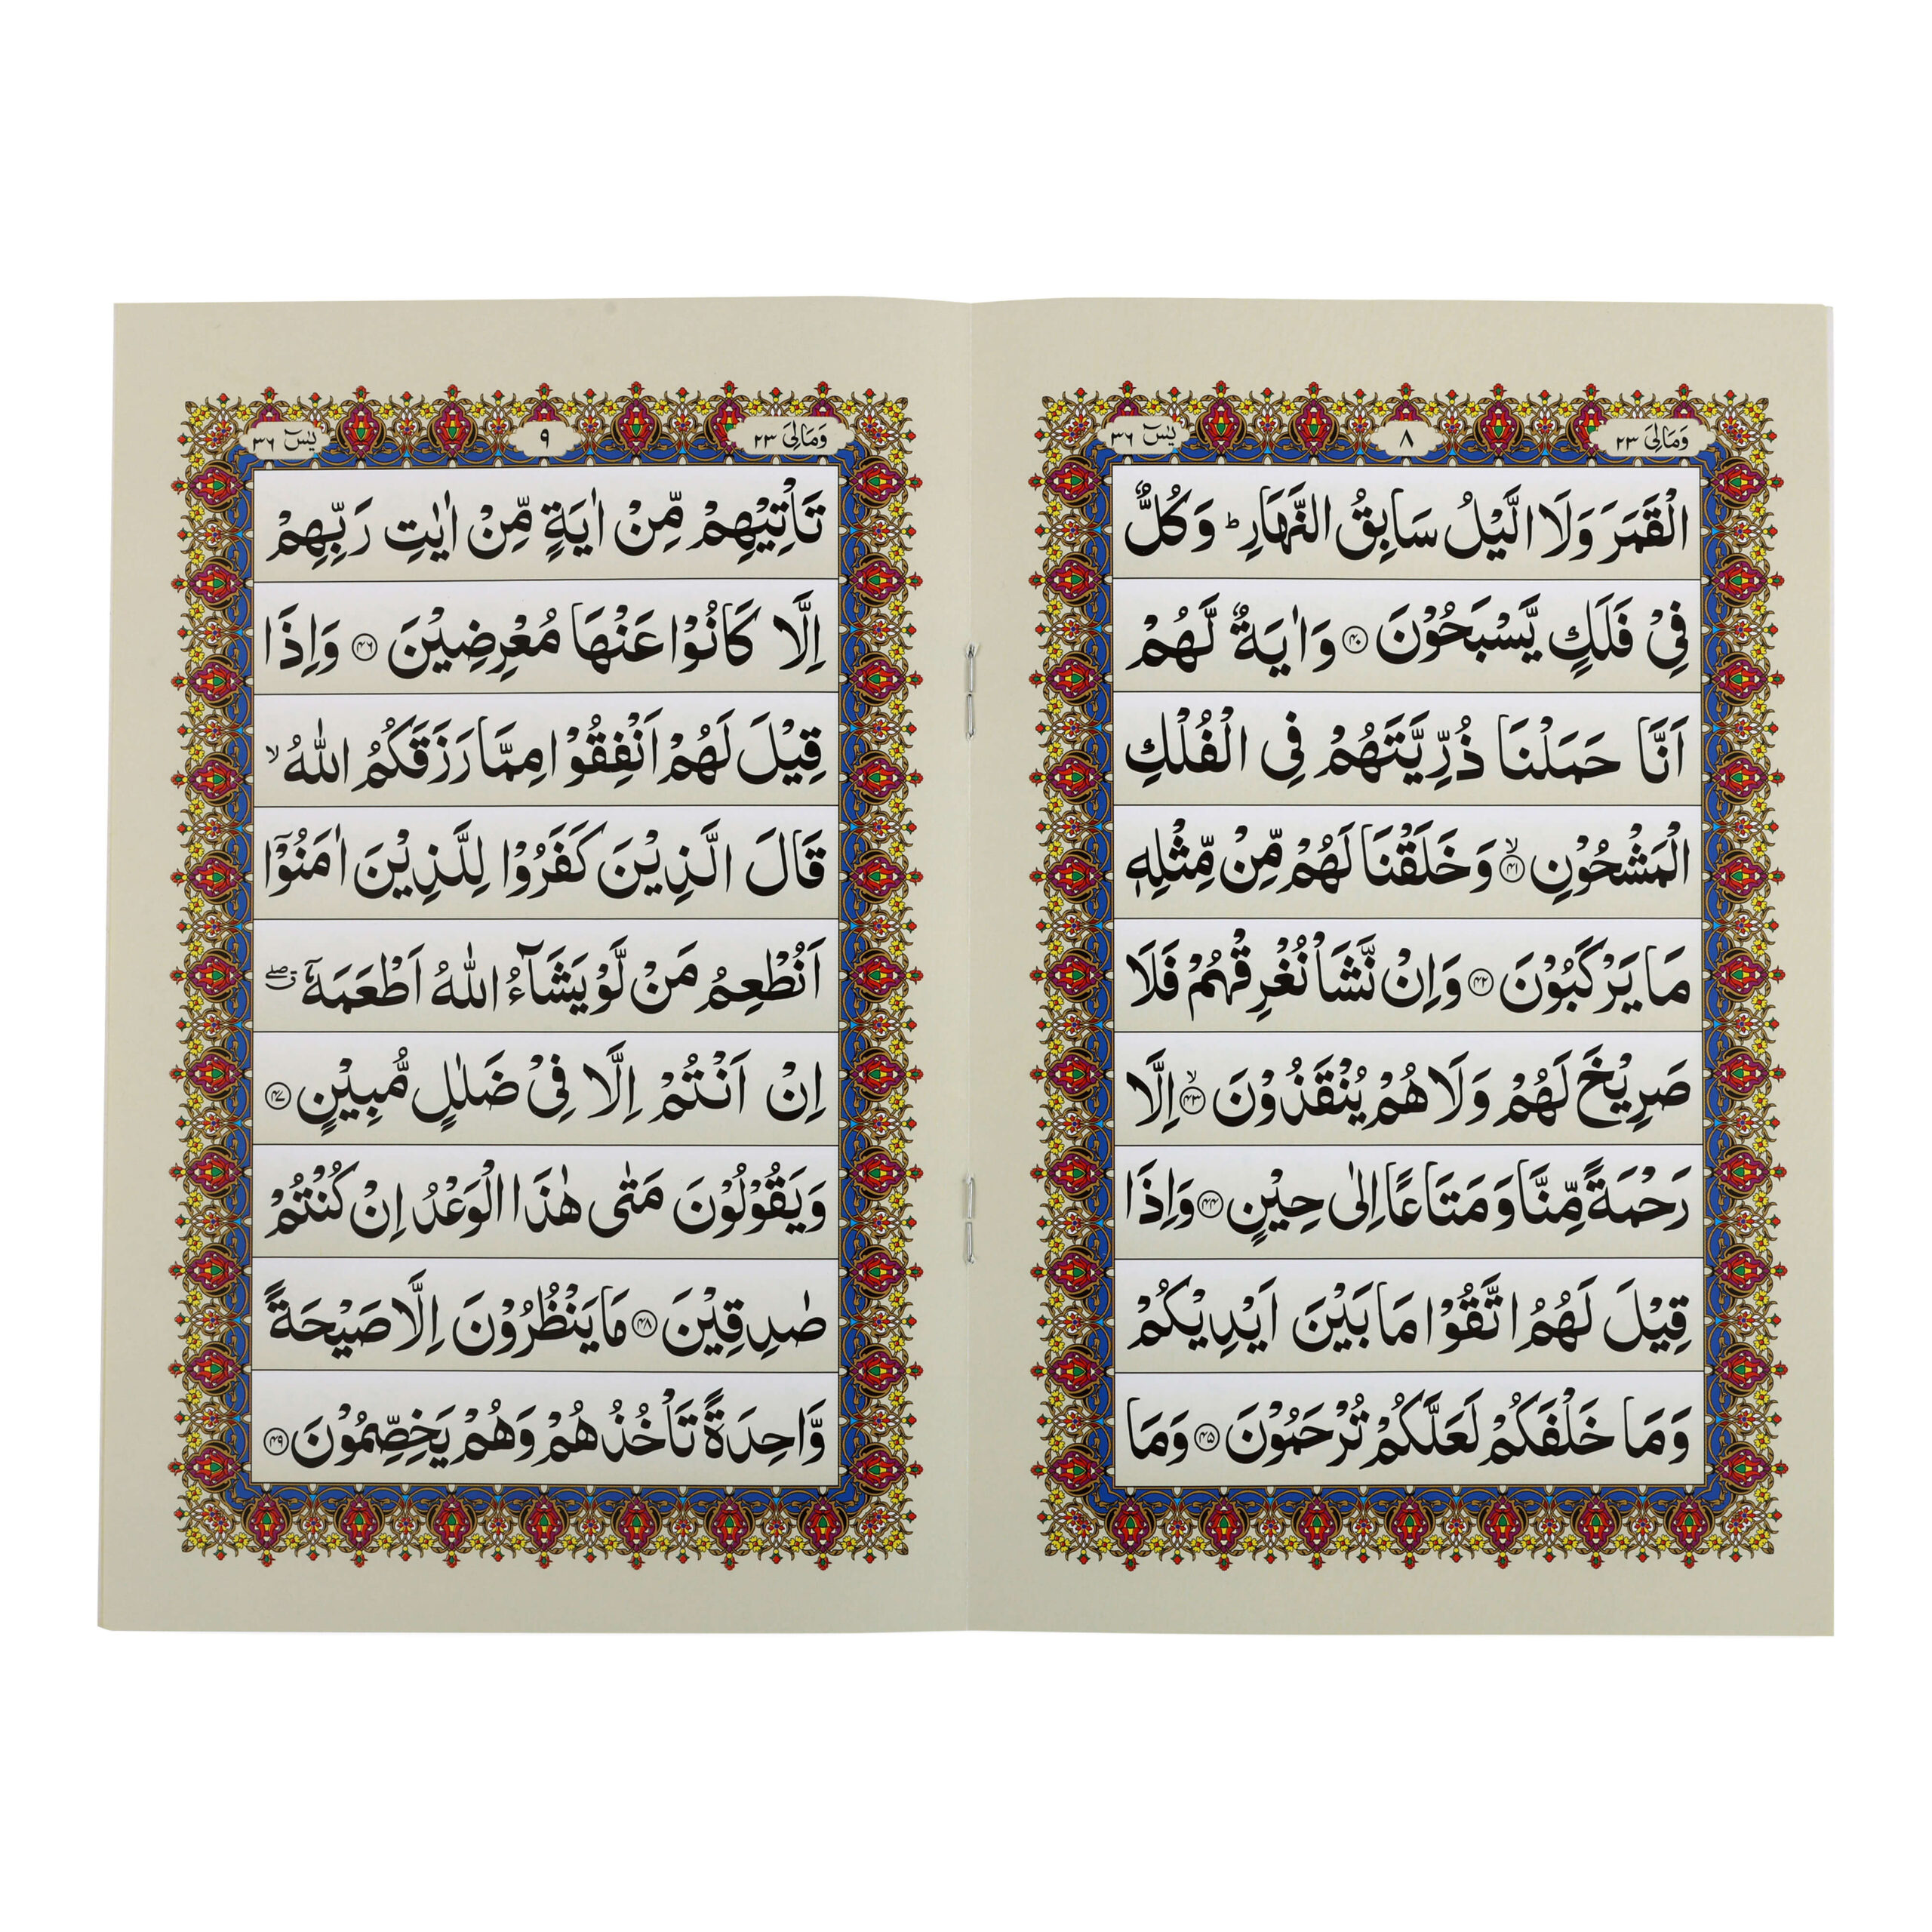 وَمَالِیَ ۲۳
۸
یٰسٓ ۳۶
الْقَمَرَ وَلَا الَّیْلُ سَابِقُ النَّهَارِؕ وَكُلٌّ
فِیْ فَلَكٍ یَّسْبَحُوْنَ ﴿۴۰﴾ وَاٰیَةٌ لَّهُمْ
اَنَّا حَمَلْنَا ذُرِّیَّتَهُمْ فِی الْفُلْكِ
الْمَشْحُوْنِ ﴿۴۱﴾ۙ وَخَلَقْنَا لَهُمْ مِّنْ مِّثْلِهٖ
مَا یَرْكَبُوْنَ ﴿۴۲﴾ وَاِنْ نَّشَاْ نُغْرِقْهُمْ فَلَا
صَرِیْخَ لَهُمْ وَلَا هُمْ یُنْقَذُوْنَ ﴿۴۳﴾ۙ اِلَّا
رَحْمَةً مِّنَّا وَمَتَاعًا اِلٰی حِیْنٍ ﴿۴۴﴾ وَاِذَا
قِیْلَ لَهُمُ اتَّقُوْا مَا بَیْنَ اَیْدِیْكُمْ
وَمَا خَلْفَكُمْ لَعَلَّكُمْ تُرْحَمُوْنَ ﴿۴۵﴾ وَمَا
وَمَالِیَ ۲۳
۹
یٰسٓ ۳۶
تَاْتِیْهِمْ مِّنْ اٰیَةٍ مِّنْ اٰیٰتِ رَبِّهِمْ
اِلَّا كَانُوْا عَنْهَا مُعْرِضِیْنَ ﴿۴۶﴾ وَاِذَا
قِیْلَ لَهُمْ اَنْفِقُوْا مِمَّا رَزَقَكُمُ اللّٰهُۙ
قَالَ الَّذِیْنَ كَفَرُوْا لِلَّذِیْنَ اٰمَنُوْۤا
اَنُطْعِمُ مَنْ لَّوْ یَشَآءُ اللّٰهُ اَطْعَمَهٗۤ ۖق
اِنْ اَنْتُمْ اِلَّا فِیْ ضَلٰلٍ مُّبِیْنٍ ﴿۴۷﴾
وَیَقُوْلُوْنَ مَتٰی هٰذَا الْوَعْدُ اِنْ كُنْتُمْ
صٰدِقِیْنَ ﴿۴۸﴾ مَا یَنْظُرُوْنَ اِلَّا صَیْحَةً
وَّاحِدَةً تَاْخُذُهُمْ وَهُمْ یَخِصِّمُوْنَ ﴿۴۹﴾